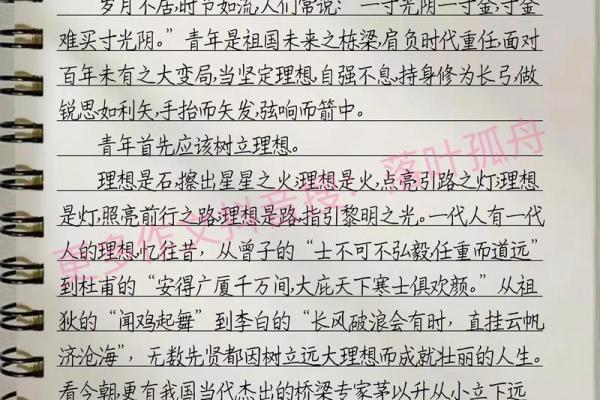 岁月不居,时节如流,人们常说:“一寸光阴一寸金,寸金
难买寸光阴。”青年是祖国未来之栋梁,肩负时代重任,面对
百年未有之大变局,当坚定理想,自强不息,持身修为长弓,做
锐思如利矢,手抬而矢发,弦响而箭中。
青年首先应该树立理想。
理想是石,擦出星星之火;理想是火,点亮引路之灯;理想
是灯,照亮前行之路;理想是路,指引黎明之光。一代人有一代
人的理想,忆往昔,从曾子的“士不可不弘毅,任重而道远”
到杜甫的“安得广厦千万间,大庇天下寒士俱欢颜。”从祖
狄的“闻鸡起舞”到李白的“长风破浪会有时,直挂云帆
济沧海”,无数先贤都因树立远大理想而成就壮丽的人生。
看今朝,更有我国当代杰出的桥梁专家茅以升从小立下远
更多作文抖音搜:落叶孤舟